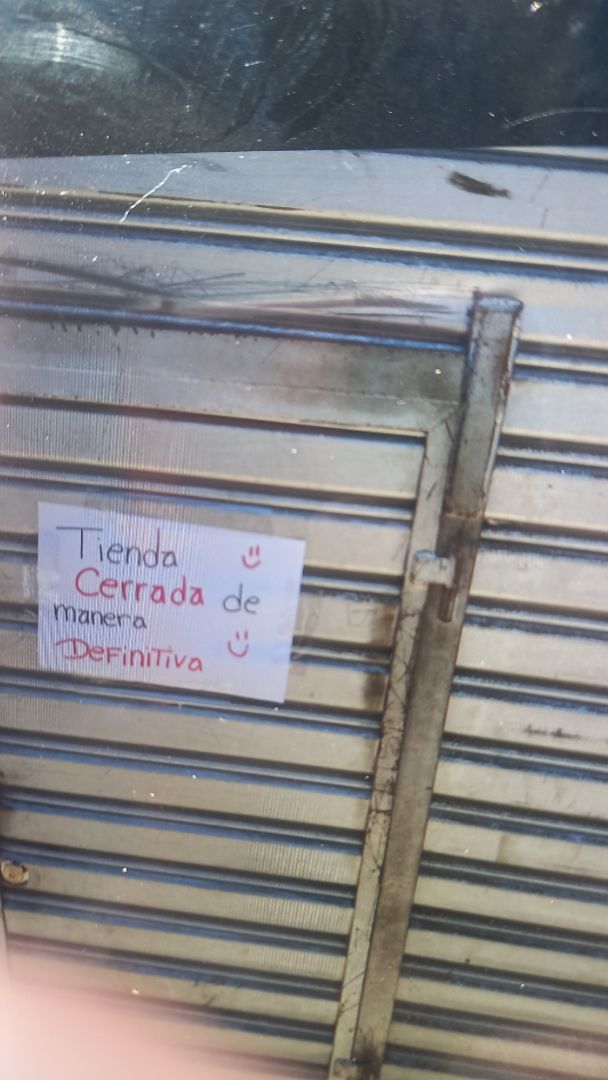 Tienda
Cerrada de
manera
Definitiva